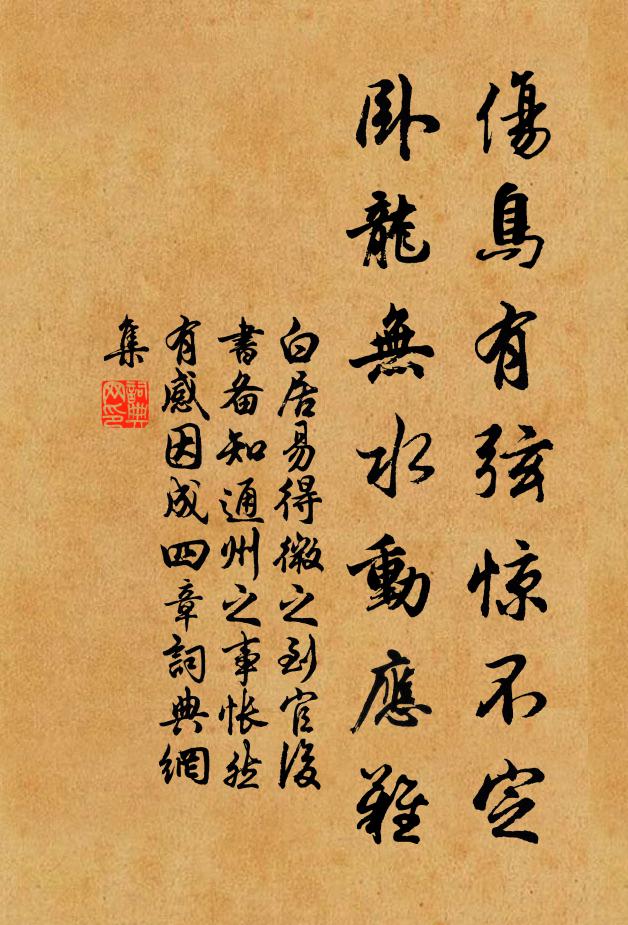 傷鳥有弦惊不定
臥龍無水動應難
白居易得微之到官後
書备知通州之事怅然
有感因成四章詞典網
集
詞典網印